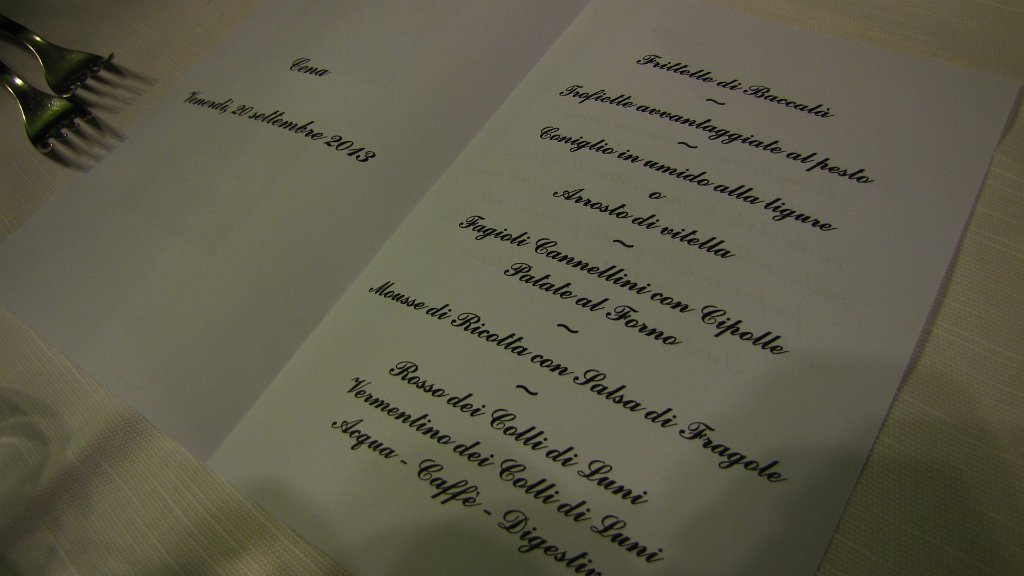 Cena
Venerdì, 20 settembre 2013
Frittelle di Baccalà
~
Trofiette avvantaggiate al pesto
~
Coniglio in umido alla ligure
o
Arrosto di vitella
~
Fagioli Cannellini con Cipolle
Patate al Forno
~
Mousse di Ricotta con Salsa di Fragole
~
Rosso dei Colli di Luni
Vermentino dei Colli di Luni
Acqua - Caffè -